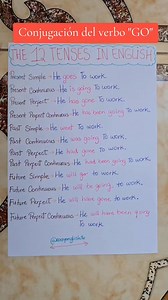 Conjugación del verbo "GO"
THE 12 TENSES IN ENGLISH
Present Simple - He goes to work.
Present Continuous - He is going to work.
Present Perfect - He has gone to work.
Present Perfect Continuous - He has been going to work.
Past Simple - He went to work.
Past Continuous - He was going to work.
Past Perfect - He had gone to work.
Past Perfect Continuous - He had been going to work.
Future Simple - He will go to work.
Future Continuous - He will be going to work.
Future Perfect - He will have gone to work.
Future Perfect Continuous - He will have been going
to work.